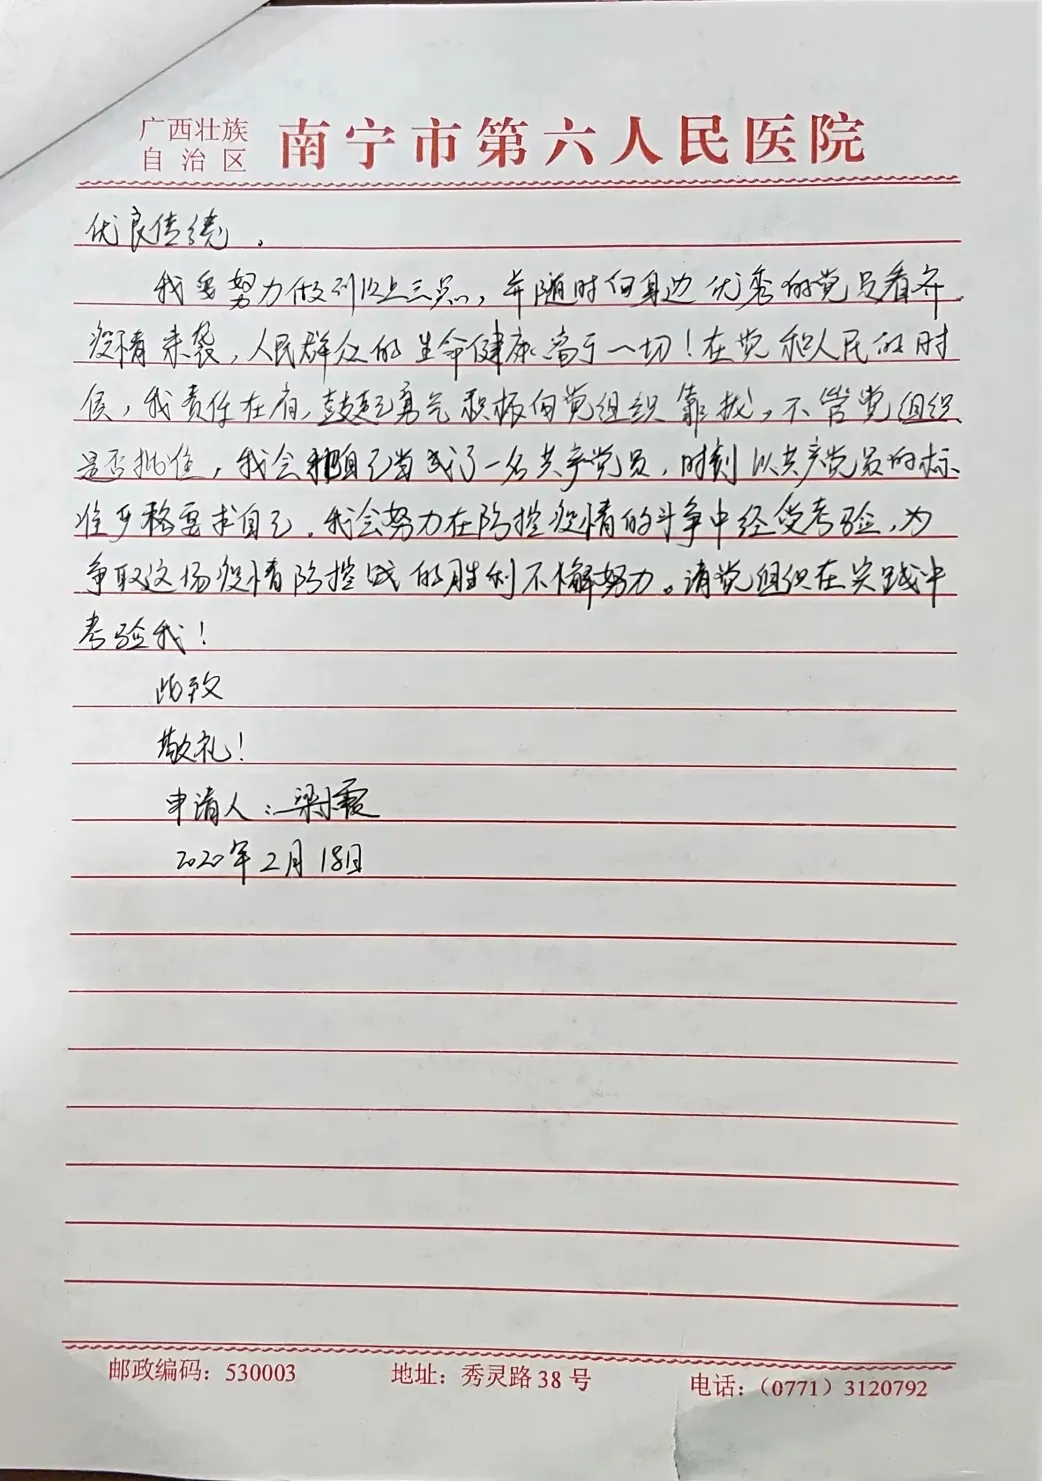 广西壮族
自治区
南宁市第六人民医院
优良传统。
我要努力做到以上三点，并随时向身边优秀的党员看齐。
疫情来袭，人民群众的生命健康高于一切！在党和人民的时
候，我责任在肩，鼓起勇气积极向党组织靠拢。不管党组织
是否批准，我会把自己当成了一名共产党员，时刻以共产党员的标
准严格要求自己。我会努力在防控疫情的斗争中经受考验，为
争取这场疫情防控战的胜利不懈努力。请党组织在实践中
考验我！
此致
敬礼！
申请人：梁小霞
2020年2月18日
邮政编码：530003
地址：秀灵路38号
电话：（0771）3120792